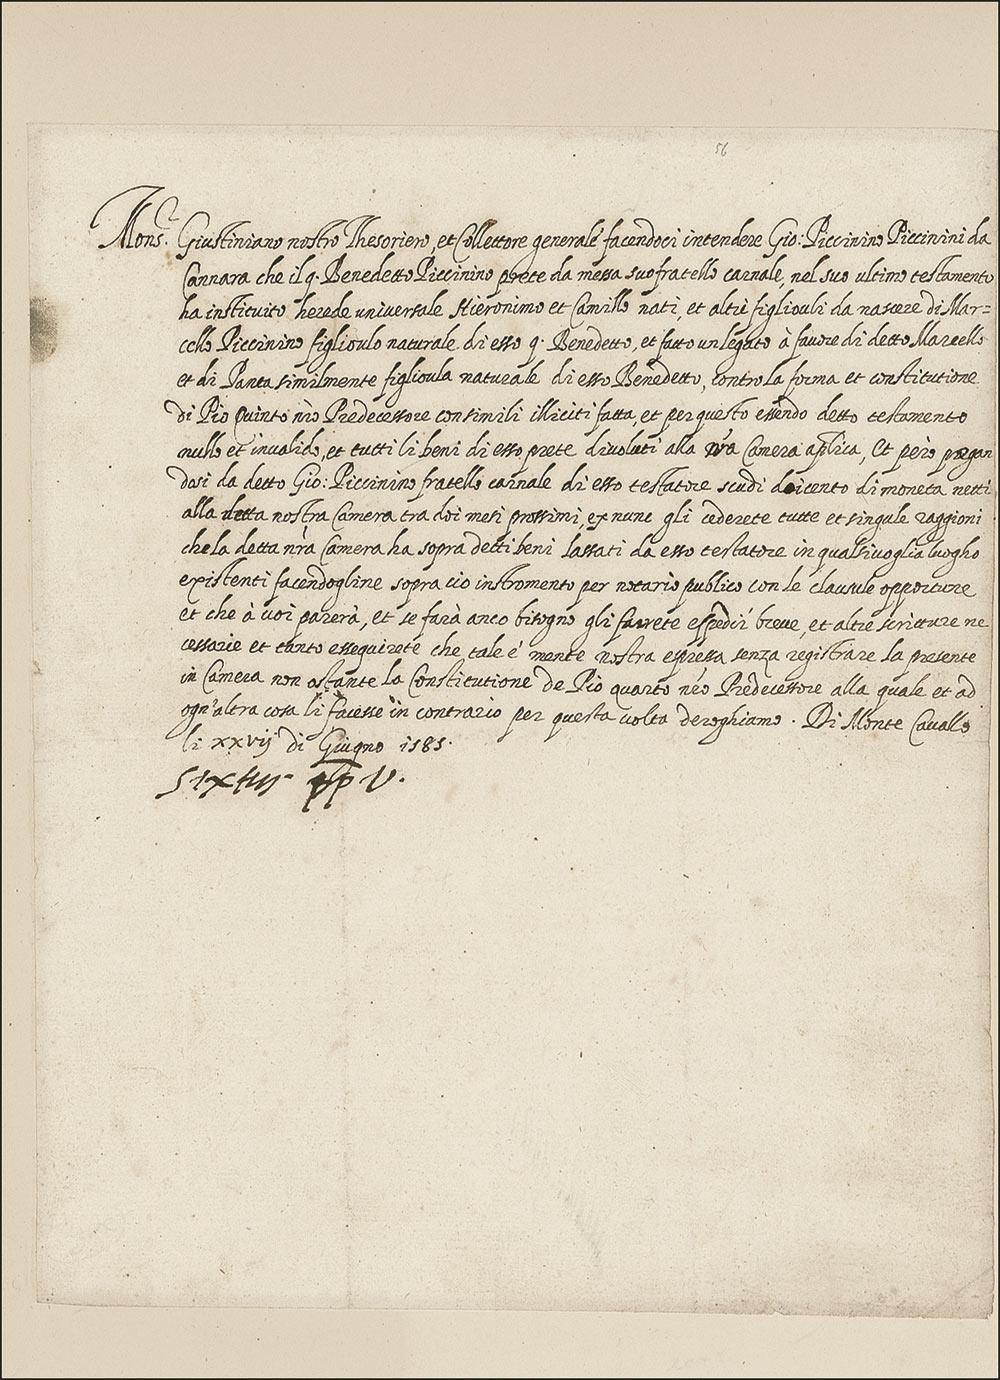 56
Mons.r Giustiniano nostro Thesoriero, et Collettore generale facendoci intendere Gio: Piccinino Piccinini da
Cannara che il q. Benedetto Piccinino prete da messa suo fratello carnale, nel suo ultimo testamento
ha instituito herede universale Hieronimo et Camillo nati, et altri figliouli da nascere di Mar=
cello Piccinino figlioulo naturale di esso q. Benedetto, et fatto un legato à favore di detto Marcello
et di Panta similmente figlioula naturale di esso Benedetto, contro la forma et constitutione
di Pio Quinto nr̃o Predecessore con simili illiciti fatta, et per questo essendo detto testamento
nullo et invalido, et tutti li beni di esso prete divoluti alla nr̃a Camera aplica, Et però pagan
dosi da detto Gio: Piccinino fratello carnale di esso testatore scudi doicento di moneta netti
alla detta nostra Camera tra doi mesi prossimi, ex nunc gli cederete tutte et singule raggioni
che la detta nr̃a Camera ha sopra detti beni lassati da esso testatore in qual si voglia luogho
existenti facendogline sopra ciò instromento per notario publico con le clausule opportune
et che à voi parerà, et se farà anco bisogno gli farete espedir breve, et altre scritture ne
cessarie et tanto esseguirete che tale é mente nostra espressa senza registrare la presente
in Camera non ostante la Constitutione de Pio quarto nr̃o Predecessore alla quale et ad
ogn'altra cosa li facesse in contrario per questa volta deroghiamo. Di Monte Cavallo
li xxvij di Giugno 1585.
Sixtus pp V.